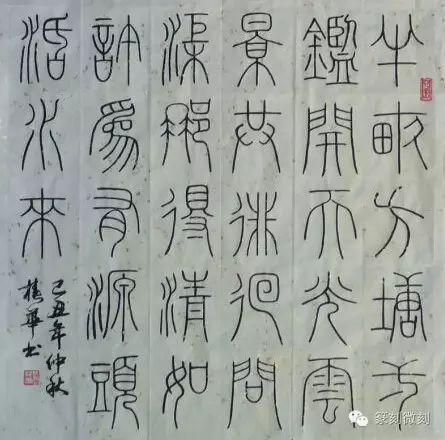 半畝方塘弌
鑑開天光雲
景共徘徊問
渠那得清如
許爲有源頭
活水來
己丑年仲秋
華书
篆刻微刻